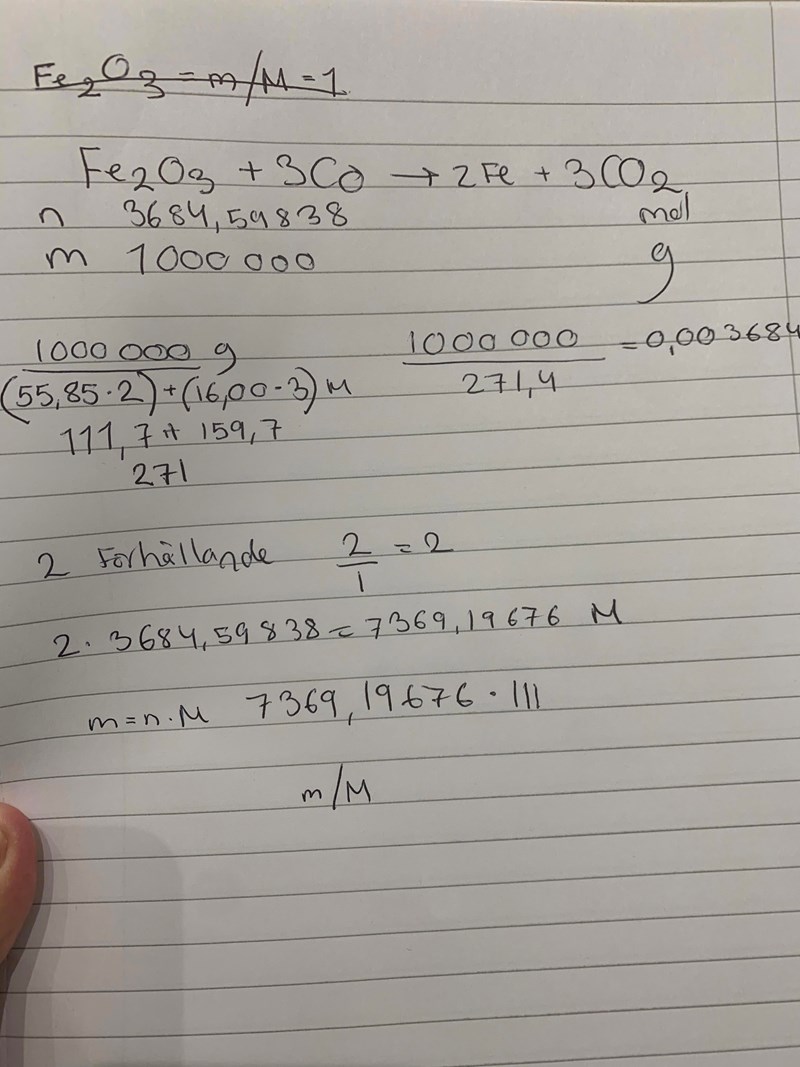 Fe2O3 = m/M = 1
Fe2O3 + 3CO → 2Fe + 3CO2
n 3684,59838 mol
m 1000 000 g
1000 000 g
(55,85·2)+(16,00·3) M
111,7 + 159,7
271
1000 000 = 0,003684
271,4
2 Förhållande 2/1 = 2
2· 3684,59838 = 7369,19676 M
m=n·M 7369,19676 · 111
m/M